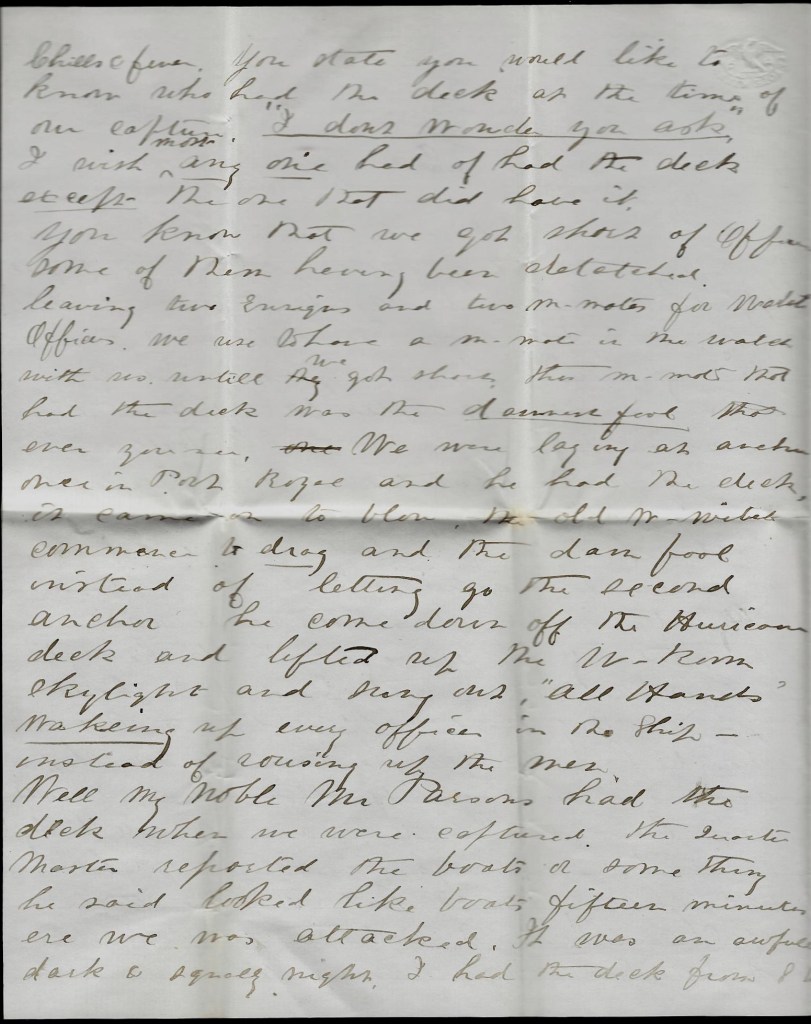 Chills & fever. You state you would like to
know who had the deck at the time of
our capture. "I dont wonder you ask,"
I wish most any one had of had the deck
except the one that did have it.
You know that we got short of Officers
some of them having been detatched.
leaving two Ensigns and two m-mates for Watch
Officers. we use to have a m-mate in the watch
with us. untill we got short, this m-mate that
had the deck was the damnest fool that
ever you see, one We were laying at anchor
once in Port Royal and he had the deck,
it came on to blow, the old W-Witch
commence to drag and the dam fool
instead of letting go the second
anchor he come down off the Huricane
deck and lifted up the W-Room
skylight and sung out, "All Hands"
Wakeing up every officer in the Ship -
instead of rousing up the men
Well my noble Mr Parsons had the
deck when we were captured. the Quarter
Master reported the boats or some thing
he said looked like boats fifteen minutes
ere we was attacked. It was an awfull
dark & squally night. I had the deck from 8